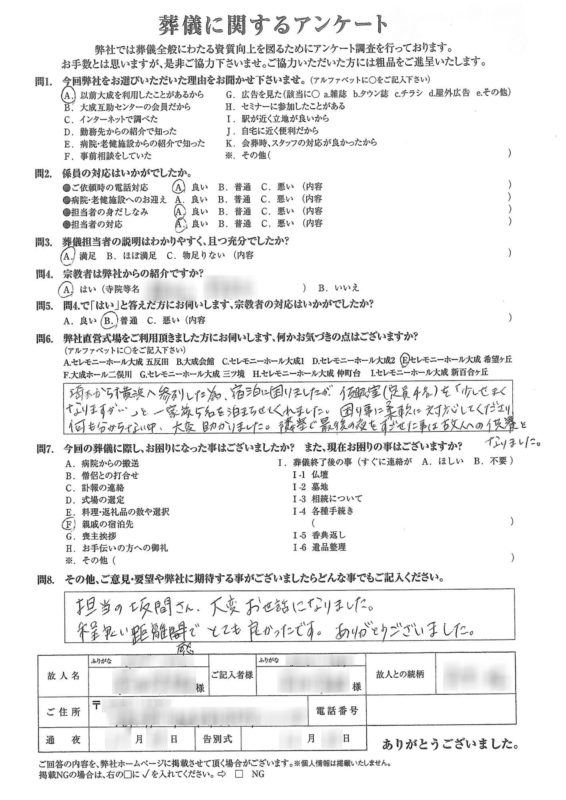 葬儀に関するアンケート
弊社では葬儀全般にわたる資質向上を図るためにアンケート調査を行っております。
お手数とは思いますが、是非ご協力下さいませ。ご協力いただいた方には粗品をご進呈いたします。
問1. 今回弊社をお選びいただいた理由をお聞かせ下さいませ。(アルファベットに○をご記入下さい)
A. 以前大成を利用したことがあるから G. 広告を見た(該当に○ a.雑誌 b.タウン誌 c.チラシ d.屋外広告 e.その他)
B. 大成互助センターの会員だから H. セミナーに参加したことがある
C. インターネットで調べた I. 駅が近く立地が良いから
D. 勤務先からの紹介で知った J. 自宅に近く便利だから
E. 病院・老健施設からの紹介で知った K. 会葬時、スタッフの対応が良かったから
F. 事前相談をしていた ※. その他( )
問2. 係員の対応はいかがでしたか。
●ご依頼時の電話対応 A. 良い B. 普通 C. 悪い (内容 )
●病院・老健施設へのお迎え A. 良い B. 普通 C. 悪い (内容 )
●担当者の身だしなみ A. 良い B. 普通 C. 悪い (内容 )
●担当者の対応 A. 良い B. 普通 C. 悪い (内容 )
問3. 葬儀担当者の説明はわかりやすく、且つ充分でしたか?
A. 満足 B. ほぼ満足 C. 物足りない (内容 )
問4. 宗教者は弊社からの紹介ですか?
A. はい (寺院等名 ) B. いいえ
問5. 問4.で「はい」と答えた方にお伺いします、宗教者の対応はいかがでしたか?
A. 良い B. 普通 C. 悪い (内容 )
問6. 弊社直営式場をご利用頂きました方にお伺いします、何かお気づきの点はございますか?
(アルファベットに○をご記入下さい)
A.セレモニーホール大成 五反田 B.大成会館 C.セレモニーホール大成1 D.セレモニーホール大成2 E.セレモニーホール大成 希望ヶ丘
F.大成ホール二俣川 G.セレモニーホール大成 三ツ境 H.セレモニーホール大成 仲町台 I.セレモニーホール大成 新百合ヶ丘
埼玉から横浜へ参列した為、宿泊に困りましたが、仮眠室(定員4名)を「少しせまく
なりますが…」と一家族5名を泊まらせてくれました。困り事に柔軟に対応してくださり、
何も分からない中、大変助かりました。隣で最後の夜をすごせた事は故人への供養と
なりました。
問7. 今回の葬儀に際し、お困りになった事はございましたか? また、現在お困りの事はございますか?
A. 病院からの搬送 I. 葬儀終了後の事 (すぐに連絡が A. ほしい B. 不要)
B. 僧侶との打合せ I-1 仏壇
C. 訃報の連絡 I-2 墓地
D. 式場の選定 I-3 相続について
E. 料理・返礼品の数や選択 I-4 各種手続き
F. 親戚の宿泊先 ( )
G. 喪主挨拶 I-5 香典返し
H. お手伝いの方への御礼 I-6 遺品整理
※. その他 ( )
問8. その他、ご意見・要望や弊社に期待する事がございましたらどんな事でもご記入ください。
担当の坂間さん、大変お世話になりました。
程払い距離感でとても良かったです。ありがとうございました。
ふりがな ふりがな
故人名 様 ご記入者様 様 故人との続柄
ご住所 〒 電話番号
通夜 月 日 告別式 月 日
ありがとうございました。
ご回答の内容を、弊社ホームページに掲載させて頂く場合がございます。※個人情報は掲載いたしません。
掲載NGの場合は、右の□に✓を入れてください。⇨ □ NG